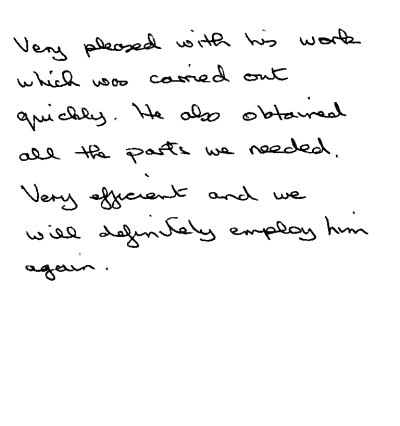 Very pleased with his work
which was carried out
quickly. He also obtained
all the parts we needed.
Very efficient and we
will definitely employ him
again.